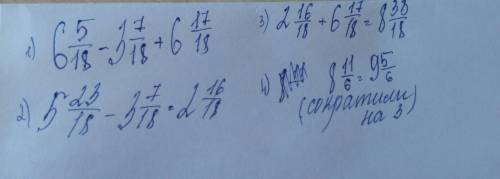 1) 6 5/18 - 3 7/18 + 6 17/18
2) 5 23/18 - 3 7/18 = 2 16/18
3) 2 16/18 + 6 17/18 = 8 33/18
4) 8 11/6 = 9 5/6
(сократили
на 3)